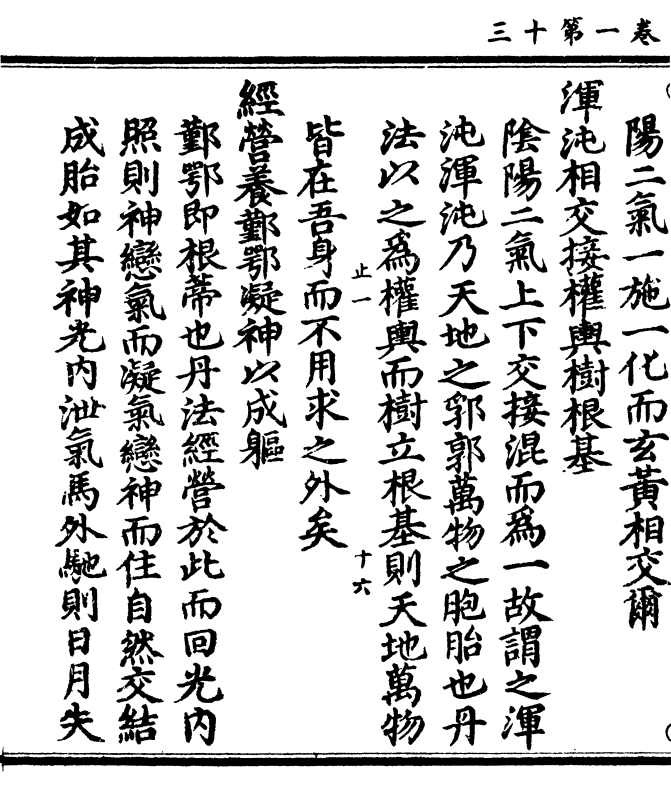 三十第一卷
陽二氣一施一化而玄黃相交爾
渾沌相交接權輿樹根基
陰陽二氣上下交接混而爲一故謂之渾
沌渾沌乃天地之郛郭萬物之胞胎也丹
法以之爲權輿而樹立根基則天地萬物
止一
十六
皆在吾身而不用求之外矣
經營養鄞鄂凝神以成軀
鄞鄂即根蒂也丹法經營於此而回光內
照則神戀氣而凝氣戀神而住自然交結
成胎如其神光內泄氣馬外馳則日月失